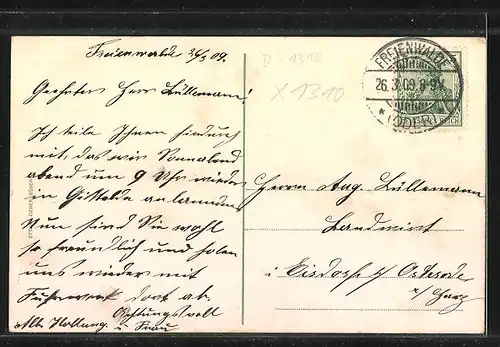 Freienwalde 26/3 09.
Geehrter Herr Lüllemann!
Ich teile Ihnen hierdurch
mit, das wir Sonnabend
abend um 9 Uhr wieder
in Gittelde anlanden
Nun sind Sie wohl
so freundlich und holen
uns wieder mit
Fuhrwerk dort ab.
Achtungsvoll
Alb. Hollung. u Frau
D - 1310
X 1310
FREIENWALDE
26.3.09.8-9V.
* (ODER)
REICH
Herrn Aug. Lüllemann
Landwirt
i Eisdorf b/ Osterode
a/ Harz